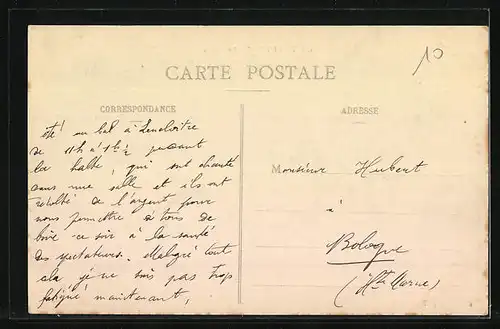 10
CARTE POSTALE
CORRESPONDANCE
ADRESSE
été au bal à
de 11h à 1h ½ pendant
la halte, qui ont chanté
dans une salle et ils ont
récolté de l'argent pour
nous permettre à tous de
boire ce soir à la santé
des spectateurs. Malgré tout
cela je ne suis pas trop
fatigué maintenant,
Monsieur Hubert
à
Bologne
(Hte Marne)